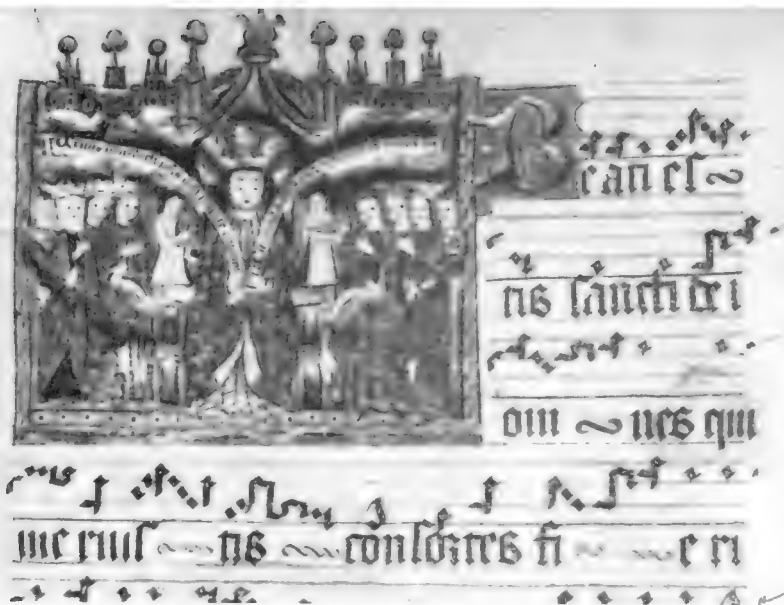 Beati es
tis sancti dei
om nes qui
me ruis tis consortes fi e ri